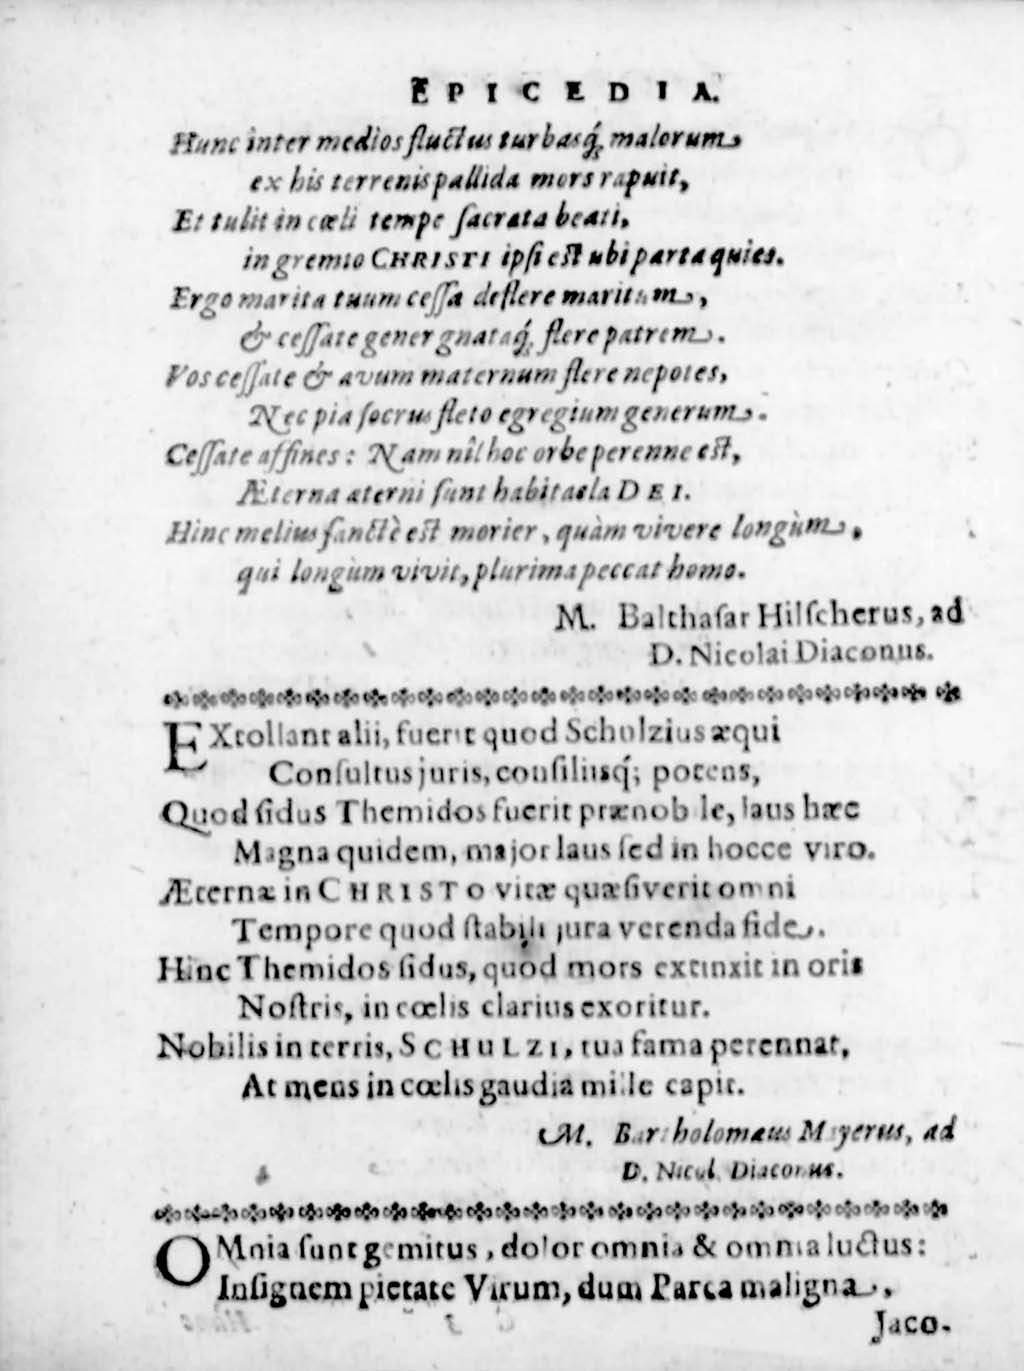 EPICEDIA.
Hunc inter medios fluctus turbasq́; malorum,
ex his terrenis pallida mors rapuit,
Et tulit in cœli tempe ſacrata beati,
in gremio CHRISTI ipſi eſt ubi parta quies.
Ergo marita tuum ceſſa deflere maritum,
& ceſſate gener gnataq́; flere patrem.
Vos ceſſate & avum maternum flere nepotes,
Nec pia ſocrus fleto egregium generum.
Ceſſate affines: Nam nîl hoc orbe perenne eſt,
Æterna æterni ſunt habitacla DEI.
Hinc melius ſanctè eſt morier, quàm vivere longùm,
qui longùm vivit, plurima peccat homo.
M. Balthaſar Hilſcherus, ad
D. Nicolai Diaconus.
EXtollant alii, fuerit quod Schulzius æqui
Conſultus juris, conſiliisq́; potens,
Quod ſidus Themidos fuerit prænobile, laus hæc
Magna quidem, major laus ſed in hocce viro.
Æternæ in CHRISTO vitæ quæſiverit omni
Tempore quod ſtabili jura verenda fide.
Hinc Themidos ſidus, quod mors extinxit in oris
Noſtris, in cœlis clarius exoritur.
Nobilis in terris, SCHULZI, tua fama perennat,
At mens in cœlis gaudia mille capit.
M. Bartholomæus Mayerus, ad
D. Nicol. Diaconus.
OMnia ſunt gemitus, dolor omnia & omnia luctus:
Inſignem pietate Virum, dum Parca maligna,
Jaco-